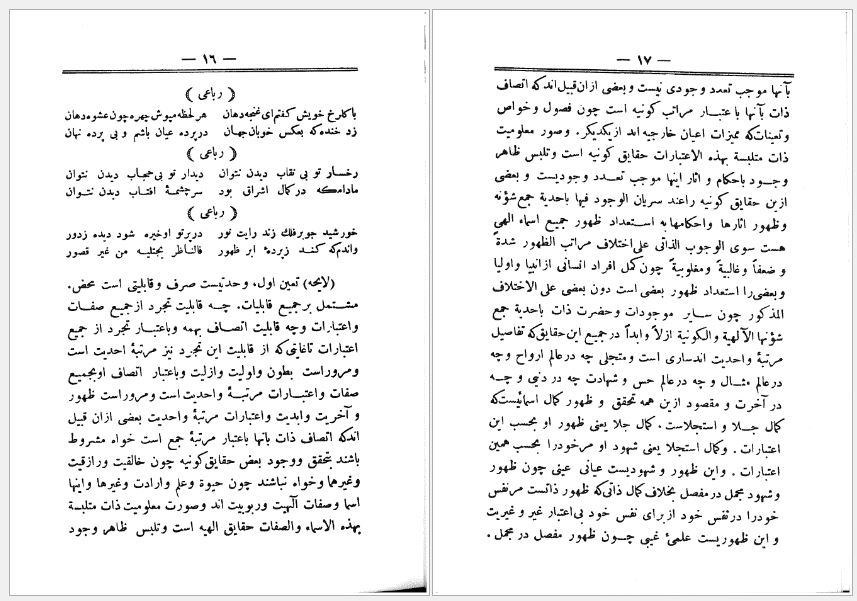 — ١٦ —
( رباعی )
با کلرخ خویش کفتم ای غنچه دهان هر لحظه مپوش چهره چون عشوه دهان
زد خنده که بعکس خوبان جهان در پرده عیان باشم و بی پرده نهان
( رباعی )
رخسار تو بی نقاب دیدن نتوان دیدار تو بی حجاب دیدن نتوان
مادامکه در کمال اشراق بود سرچشمهٔ افتاب دیدن نتوان
( رباعی )
خورشید چو بر فلك زند رایت نور در پرتو او خیره شود دیده ز دور
واندم که کند ز پردهٔ ابر ظهور فالناظر یجتلیه من غیر قصور
(لایحه) تعین اول، وحدتیست صرف و قابلیتی است محض.
مشتمل بر جمیع قابلیات. چه قابلیت تجرد از جمیع صفات
واعتبارات وچه قابلیت اتصاف بهمه وباعتبار تجرد از جمیع
اعتبارات تاغایتی که از قابلیت این تجرد نیز مرتبهٔ احدیت است
ومرور است بطون واولیت وازلیت وباعتبار اتصاف او بجمیع
صفات واعتبارات مرتبهٔ واحدیت است ومرور است ظهور
و آخریت وابدیت واعتبارات مرتبهٔ واحدیت بعضی ازان قبیل
اندکه اتصاف ذات بآنها باعتبار مرتبهٔ جمع است خواه مشروط
باشند بتحقق ووجود بعض حقایق کونیه چون خالقیت ورازقیت
وغیرهما وخواه نباشند چون حیوة وعلم وارادت وغیرها واینها
اسما وصفات آلهیت وربوبیت اند وصورت معلومیت ذات متلبسة
بهذه الاسماء والصفات حقایق الهیه است وتلبس ظاهر وجود
— ١٧ —
بآنها موجب تعدد وجودی نیست وبعضی ازان قبیل اندکه اتصاف
ذات بآنها باعتبار مراتب کونیه است چون فصول وخواص
وتعیناتکه ممیزات اعیان خارجیه اند ازیکدیکر. وصور معلومیت
ذات متلبسة بهذه الاعتبارات حقایق کونیه است وتلبس ظاهر
وجود باحکام و اثار اینها موجب تعدد وجودیست و بعضی
ازین حقایق کونیه راعند سریان الوجود فیها باحدیة جمع شؤنه
وظهور اثارها واحکامها به استعداد ظهور جمیع اسماء الهی
هست سوی الوجوب الذاتی علی اختلاف مراتب الظهور شدة
و ضعفاً وغالبیةً ومغلوبیةً چون کمل افراد انسانی از انبیا واولیا
وبعضی را استعداد ظهور بعضی است دون بعضی علی الاختلاف
المذکور چون سایر موجودات وحضرت ذات باحدیة جمع
شؤنها الآلهیة والکونیة ازلاً وابداً در جمیع این حقایق که تفاصیل
مرتبهٔ واحدیت اندساری است ومتجلی چه در عالم ارواح وچه
در عالم مثال و چه در عالم حس و شهادت چه در دنیی و چه
در آخرت و مقصود ازین همه تحقق و ظهور کمال اسمائیست که
کمال جلا و استجلاست. کمال جلا یعنی ظهور او بحسب این
اعتبارات. وکمال استجلا یعنی شهود او مرخودرا بحسب همین
اعتبارات. واین ظهور و شهودیست عیانی عینی چون ظهور
وشهود مجمل در مفصل بخلاف کمال ذاتی که ظهور ذاتست مرنفس
خودرا درنفس خود از برای نفس خود بی اعتبار غیر و غیریت
و این ظهوریست علمیٔ غیبی چون ظهور مفصل در مجمل.